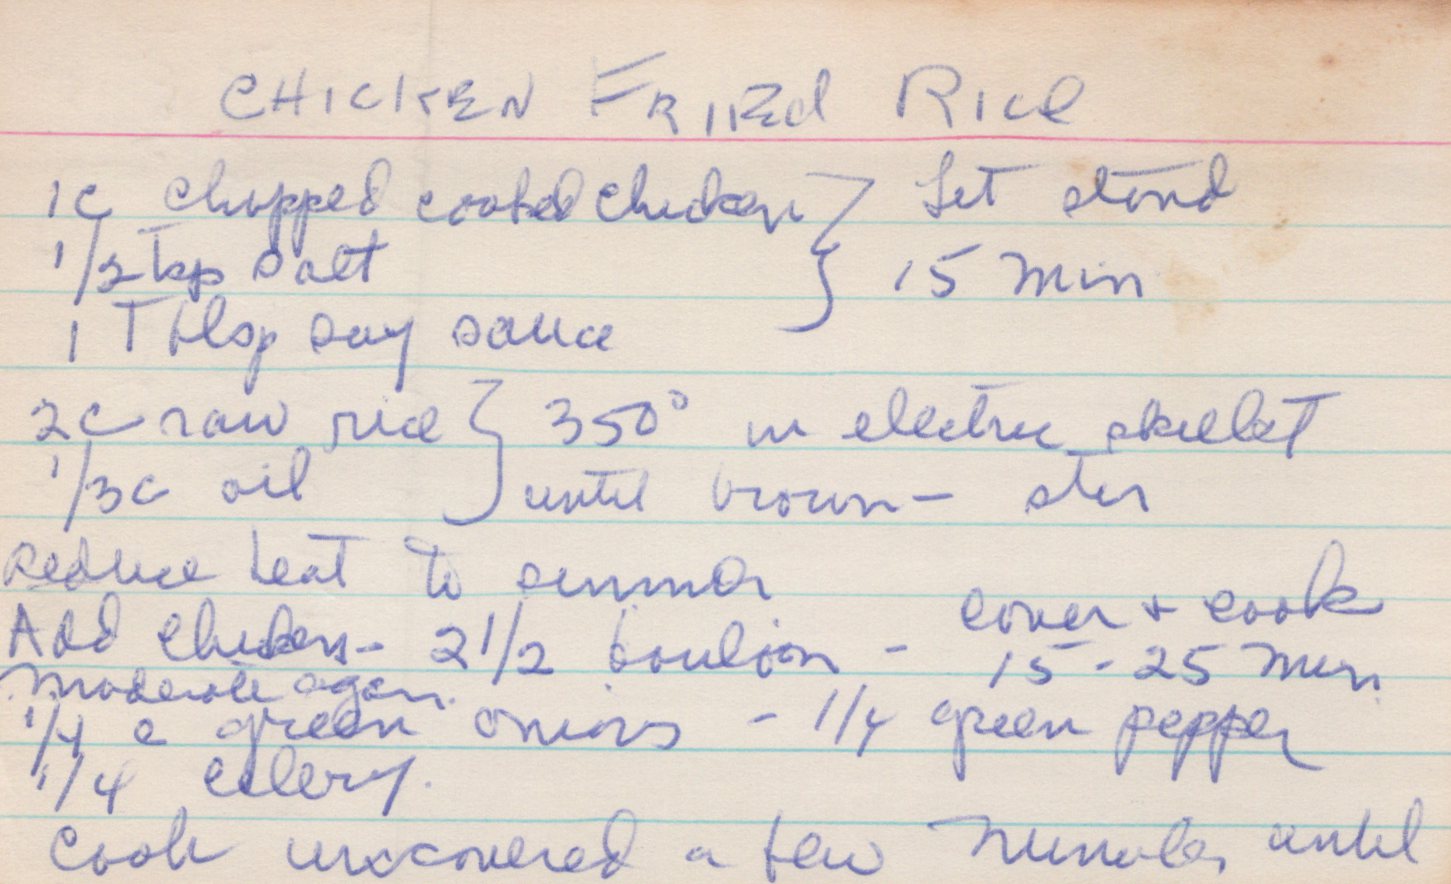 CHICKEN FRIED RICE
1c chopped cooked chicken } Let stand
1/2 tsp salt 15 min
1 Tblsp soy sauce
2c raw rice } 350° in electric skillet
1/3c oil until brown - stir
reduce heat to simmer
Add chicken - 2 1/2 boulion - cover + cook
15-25 min.
moderate again.
1/4 c green onions - 1/4 green pepper
1/4 celery.
Cook uncovered a few minutes until